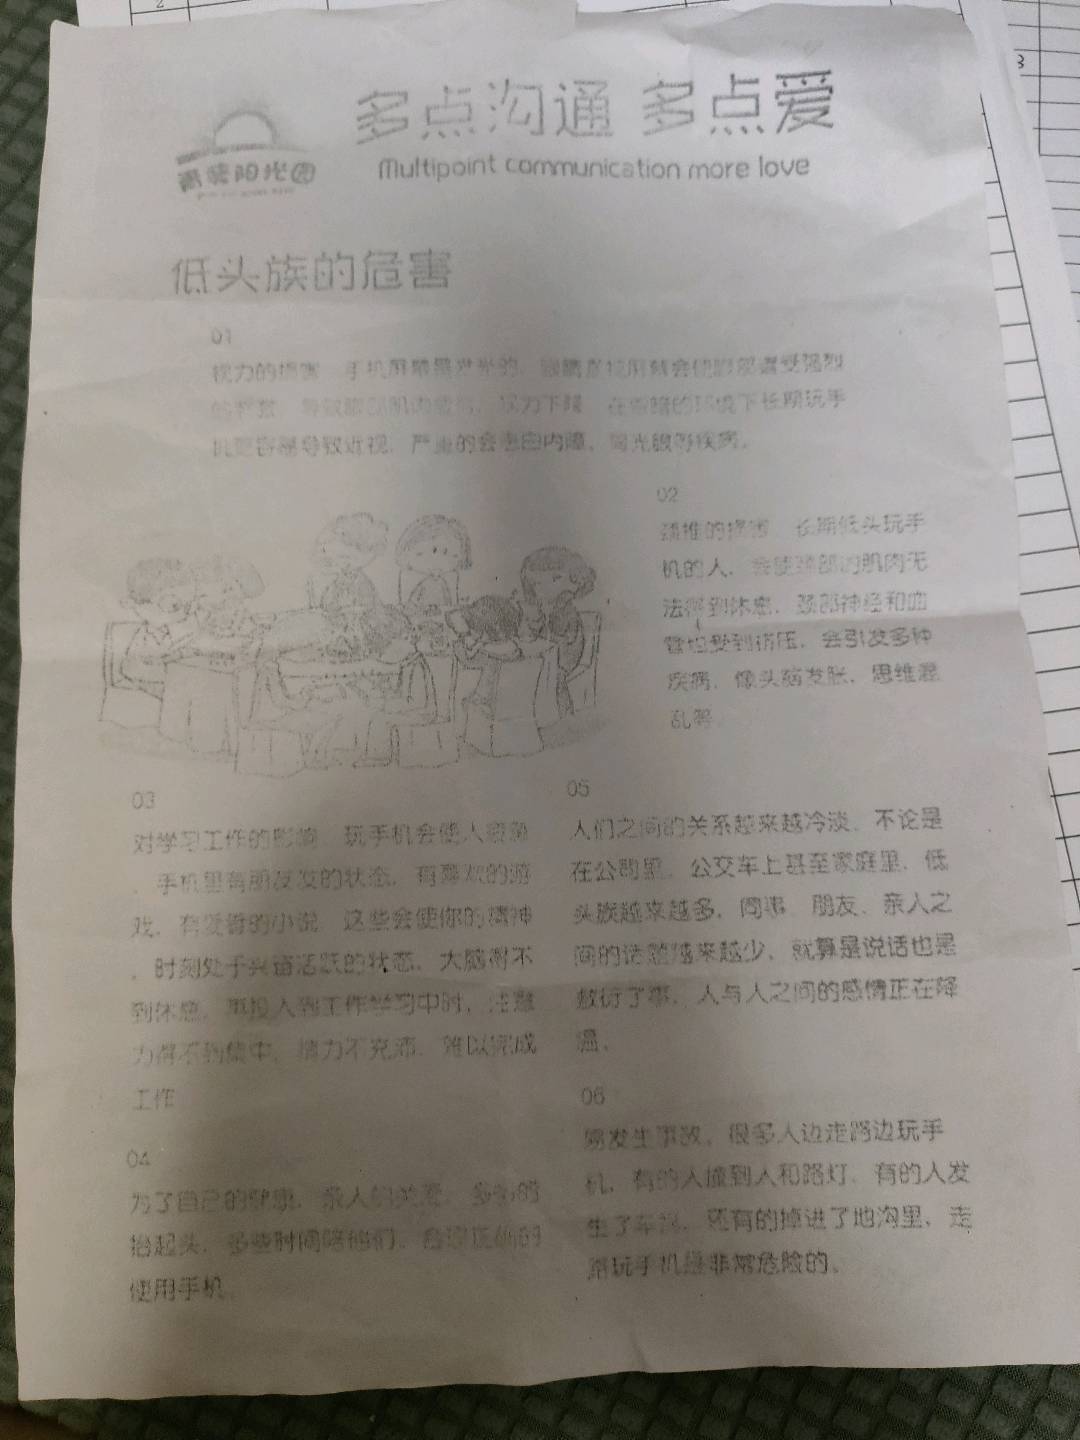 多点沟通 多点爱
Multipoint communication more love
阳光园
低头族的危害
01
视力的损害 手机屏幕是发光的，眼睛直视屏幕会使眼部遭受强烈
的刺激 导致眼部肌肉疲劳，视力下降 在昏暗的环境下长期玩手
机更容易导致近视，严重的会患白内障、青光眼等疾病。
02
颈椎的损害 长期低头玩手
机的人，会使颈部的肌肉无
法得到休息，颈部神经和血
管也受到挤压，会引发多种
疾病，像头脑发胀、思维混
乱等
03
对学习工作的影响 玩手机会使人疲惫
，手机里有朋友发的状态，有喜欢的游
戏，有爱看的小说 这些会使你的精神
，时刻处于兴奋活跃的状态，大脑得不
到休息，再投入到工作学习中时，注意
力得不到集中，精力不充沛，难以完成
工作
04
为了自己的健康，亲人的关爱，多多的
抬起头，多些时间陪他们，合理正确的
使用手机。
05
人们之间的关系越来越冷淡，不论是
在公司里，公交车上甚至家庭里，低
头族越来越多，同事、朋友、亲人之
间的话题越来越少，就算是说话也是
敷衍了事，人与人之间的感情正在降
温。
06
易发生事故，很多人边走路边玩手
机，有的人撞到人和路灯，有的人发
生了车祸，还有的掉进了地沟里，走
路玩手机是非常危险的。